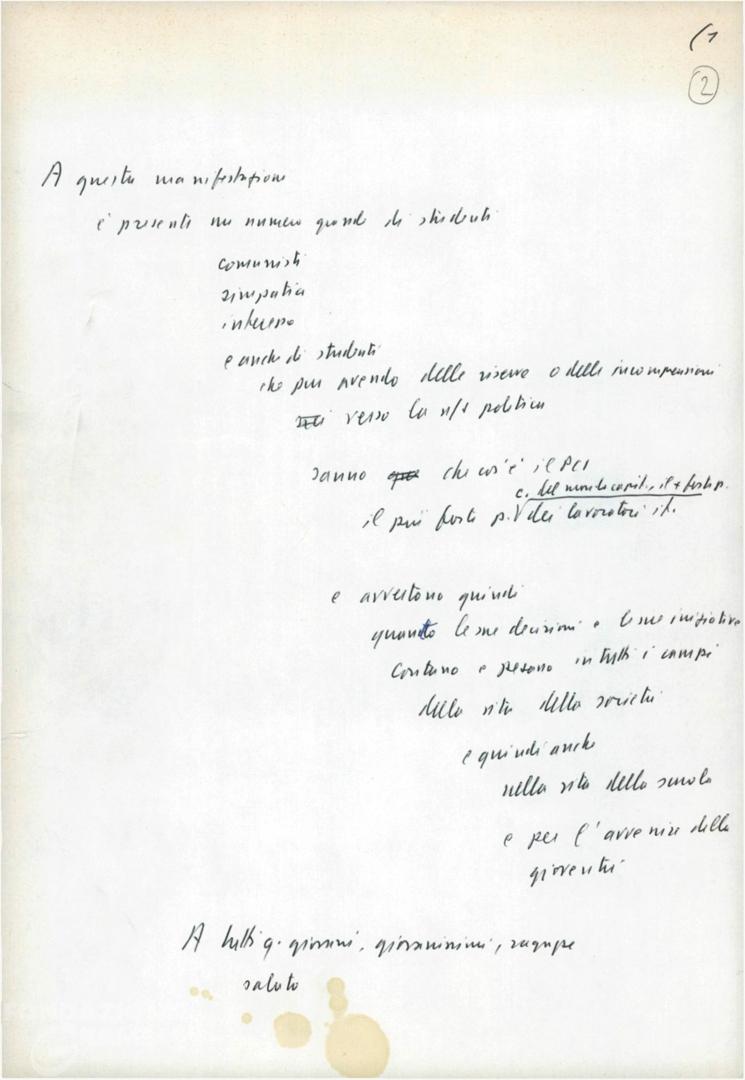 (1
2
A questa manifestazione
è presente un numero grande di studenti
comunisti
simpatia
interesse
e anche di studenti
che pur avendo delle riserve o delle incomprensioni
verso la n/s politica
sanno che cos'è il PCI
c. del mondo capit., il + forte p.
il più forte p. dei lavoratori it.
e avvertono quindi
quanto le sue decisioni e le sue iniziative
contano e pesano in tutti i campi
della vita della società
e quindi anche
nella vita della scuola
e per l'avvenire della
gioventù
A tutti q. giovani, giovanissimi, ragazze
saluto